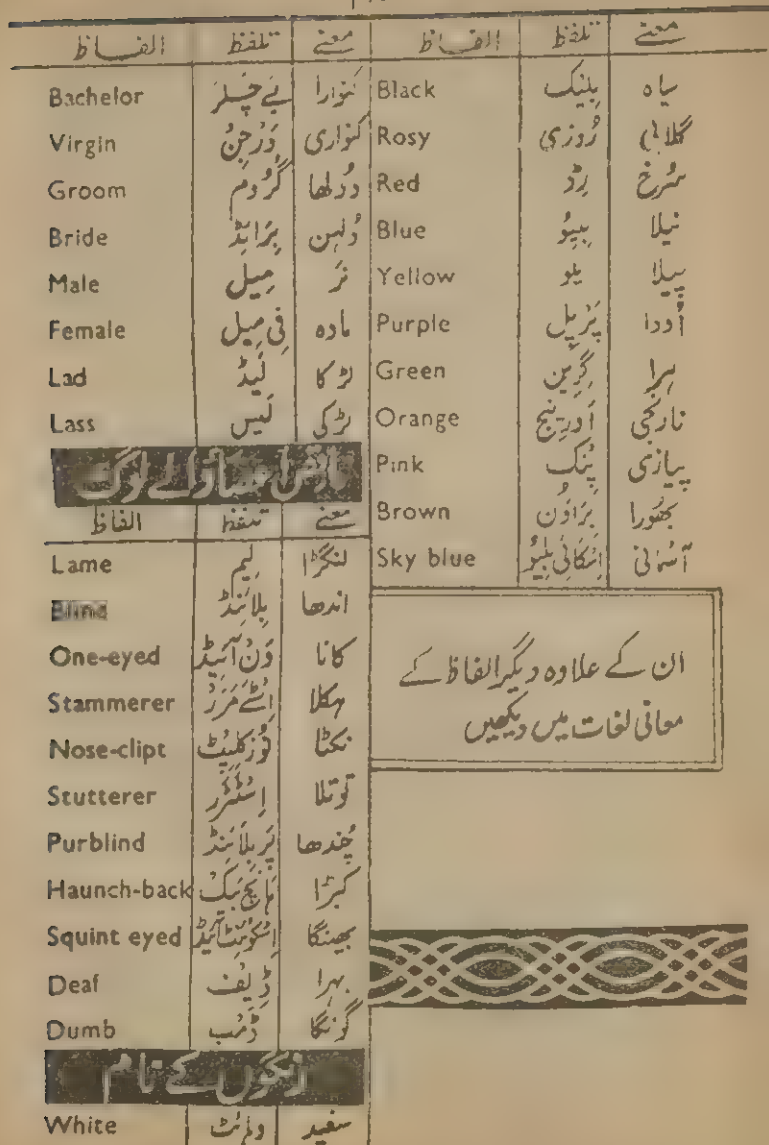 الفاظ تلفظ معنے
Bachelor بَےچَلر کنوارا
Virgin وَرجِنُ کنواری
Groom گرُوم دُولھا
Bride بَرَائڈ دُلہن
Male مِیل نَر
Female فِی مِیل مادہ
Lad لَیڈ لڑکا
Lass لَیس لڑکی
ناقص اعضاء والے لوگ
الفاظ تلفظ معنے
Lame لِیم لنگڑا
Blind بلائنڈ اندھا
One-eyed وَن آئیڈ کانا
Stammerer اِسٹَےمَرَر ہکلا
Nose-clipt نُوزکلِپٹ نکٹا
Stutterer اِسٹَٹَرر توتلا
Purblind پَربلائنڈ چُندھا
Haunch-back ہانچ بَیک کبڑا
Squint eyed اِسکوِنٹ آئیڈ بھینگا
Deaf ڈِیف بہرا
Dumb ڈَمب گونگا
رنگوں کے نام
White وہائٹ سفید
الفاظ تلفظ معنے
Black بلیک سیاہ
Rosy رُوزی گلابی
Red رِڈ سُرخ
Blue بلیُو نیلا
Yellow یلو پیلا
Purple پَرپِل اُودا
Green گرِین ہرا
Orange اَورینج نارنجی
Pink پِنک پیازی
Brown بَراؤن بھُورا
Sky blue اِسکائی بلیُو آسمانی
ان کے علاوہ دیگر الفاظ کے
معانی لغات میں دیکھیں